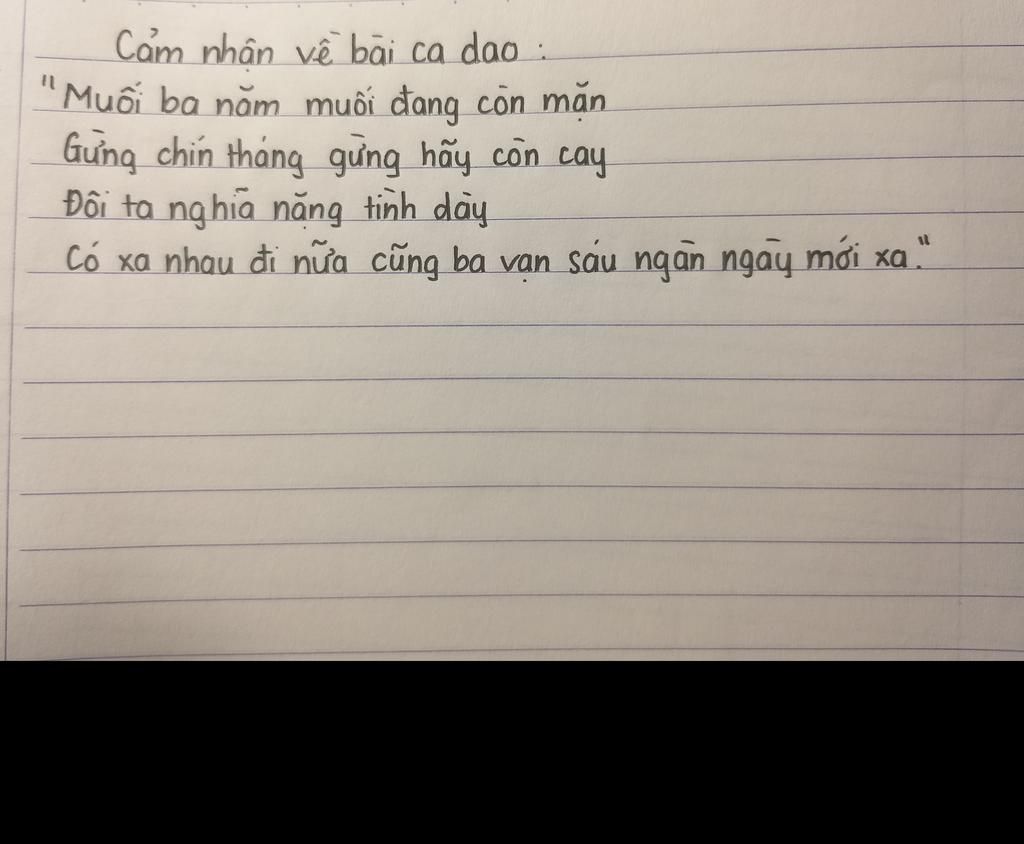 Cảm nhận về bài ca dao :
"Muối ba năm muối đang còn mặn
Gừng chín tháng gừng hãy còn cay
Đôi ta nghĩa nặng tình dày
Có xa nhau đi nữa cũng ba vạn sáu ngàn ngày mới xa."